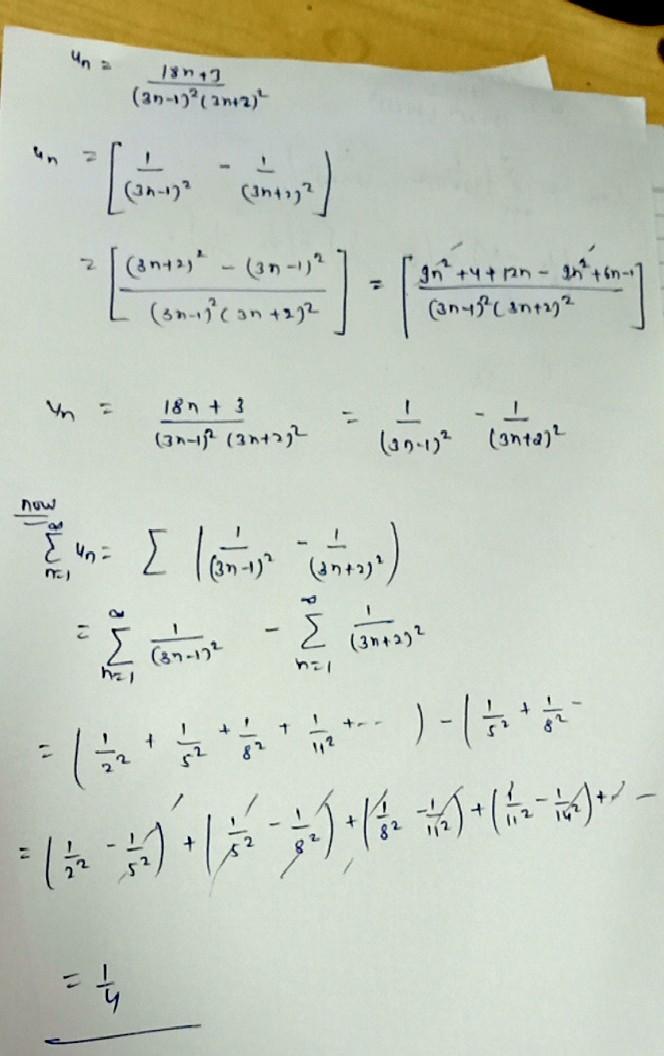 u_n = (18n+3) / ((3n-1)²(3n+2)²)
u_n = [1/(3n-1)² - 1/(3n+2)²]
= [((3n+2)² - (3n-1)²) / ((3n-1)²(3n+2)²)] = [(9n²+4+12n - 9n²+6n-1) / ((3n-1)²(3n+2)²)]
u_n = (18n + 3) / ((3n-1)² (3n+2)²) = 1/(3n-1)² - 1/(3n+2)²
now
∑_{n=1}^{∞} u_n = ∑ (1/(3n-1)² - 1/(3n+2)²)
= ∑_{n=1}^{∞} 1/(3n-1)² - ∑_{n=1}^{∞} 1/(3n+2)²
= (1/2² + 1/5² + 1/8² + 1/11² + -- ) - (1/5² + 1/8² -
= (1/2² - 1/5²) + (1/5² - 1/8²) + (1/8² - 1/11²) + (1/11² - 1/14²) + - -
= 1/4